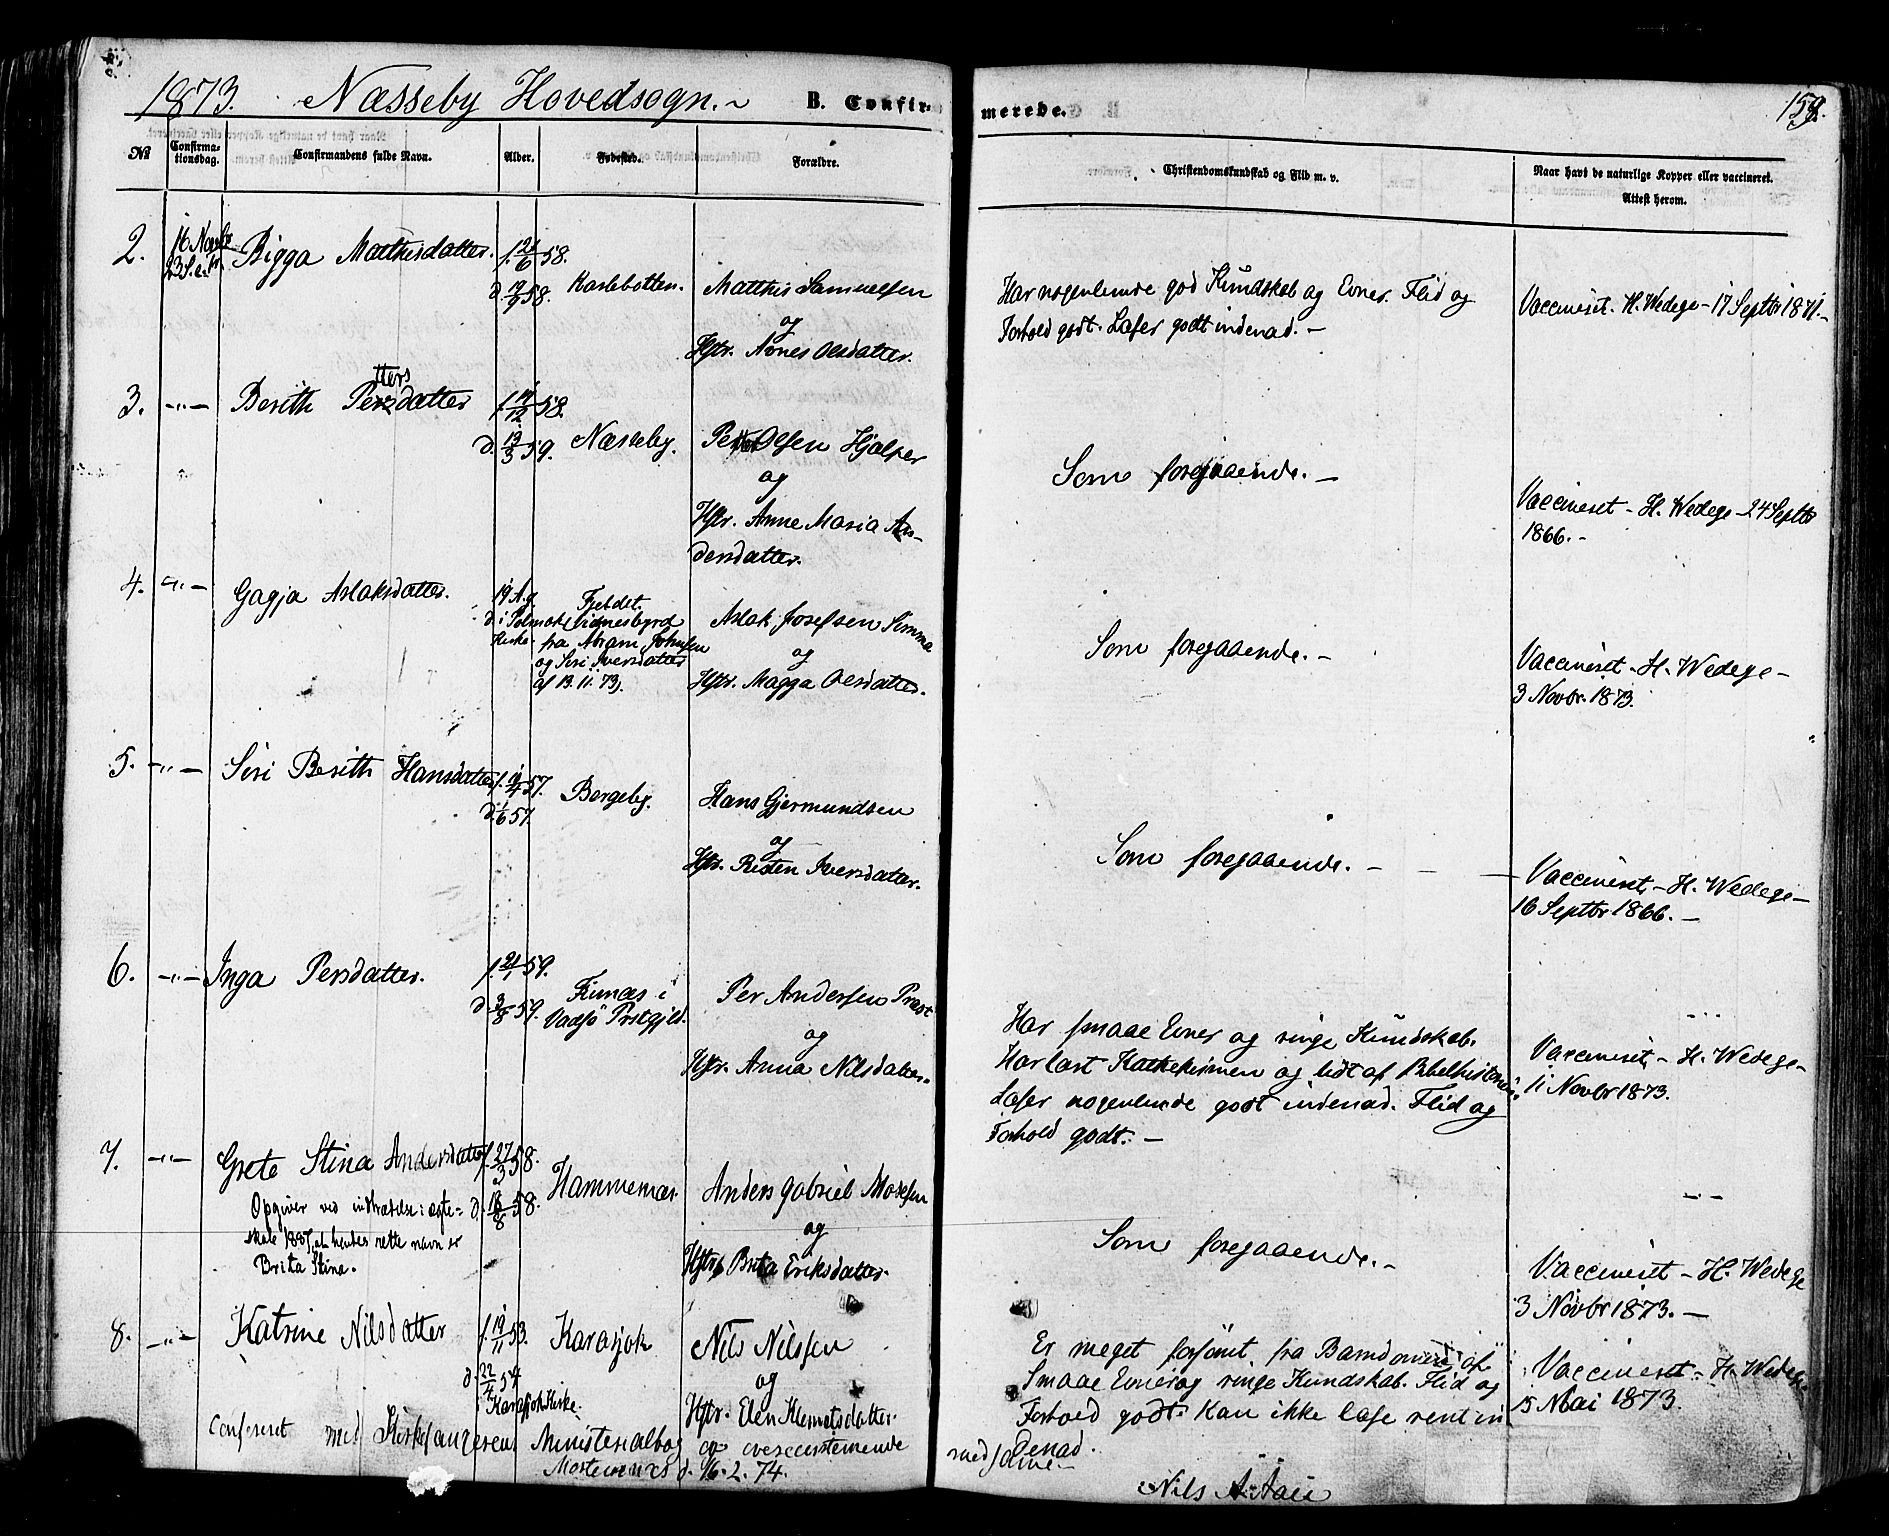 1873. Næsseby Hovedsogn.
B. Confirmerede.
159.
No
Confirmationsdag.
Confirmandens fulde Navn.
Alder.
Fødested.
Forældre.
Christendomskundskab og Flid m. v.
Naar havt de naturlige Kopper eller vaccineret.
Attest herom.
2.
16 Novbr
23 S. e. Tr.
Bigga Matthisdatter.
f. 21/6 58.
d. 19/9 58.
Karlebotten.
Matthis Samuelsen
og
Hstr. Agnes Olsdatter.
Har nogenlunde god Kundskab og Evner. Flid og
Forhold godt. Læser godt indenad. -
Vaccineret. H. Wedege - 17 Septbr 1871. -
3.
-"-
Berith Persdatter
tters
f. 14/12 58.
d. 13/3 59.
Næsseby.
Petter Olsen Hjelper
og
Hstr. Anne Maria An-
dersdatter.
Som foregaaende. -
Vaccineret - H. Wedege - 24 Septbr
1866. -
4.
-"-
Gagja Aslaksdatter.
19 A. g.
d. i Polmak
Kirke.
Fjeldet.
(Vidnesbyrd
fra Abram Johnsen
og Siri Iversdatter
af 13.11.73).
Aslak Josefsen Simma
og
Hstr. Magga Olsdatter.
Som foregaaende. -
Vaccineret - H. Wedege -
3 Novbr. 1873.
5.
-"-
Siri Berith Hansdatter
57.
d. 1/6 57.
Bergeby.
Hans Gjermundsen
og
Hstr. Risten Iversdatter.
Som foregaaende. -
Vaccineret, - H. Wedege -
16 Septbr 1866. -
6.
-"-
Inga Persdatter.
f. 21/1 59.
d. 3/8 59.
i
Vadsö Prstgjld.
Per Andersen Præst
og
Hstr. Anna Nilsdatter.
Har smaae Evner og ringe Kundskab.
Har læst Kathekismen og lidt af Bibelhistorien.
Læser nogenlunde godt indenad. Flid og
Forhold godt. -
Vaccineret, - H. Wedege -
11 Novbr 1873.
7.
-"-
Grete Stina Andersdatter
Opgiver ved indtrædelse i ægte-
skab 1887, at hendes rette navn er
Brita Stina.
f. 27/3 58.
d. 18/8 58.
Hammernæs.
Anders Gabriel Mosesen
og
Hstr. Brita Eriksdatter.
Som foregaaende. -
Vaccineret - H. Wedege
3 Novbr 1873. -
8.
-"-
Katrine Nilsdatter
f. 19/11 53.
d. 22/4 54
Karasjok Kirke.
Karasjok
Nils Nilssen
og
Hstr. Elen Klemetsdatter.
Er meget forsömt fra Barndommen af
Smaae Evner og ringe Kundskab. Flid og
Forhold godt. Kan ikke læse rent in
denad.
Vaccineret - H. Wedege.
15 Mai 1873.
Confereret med Kirkesangerens Ministerialbog og overeensstemmende
med samme. -
Mortensnes d. 16.2.74.
Nils A. Aall